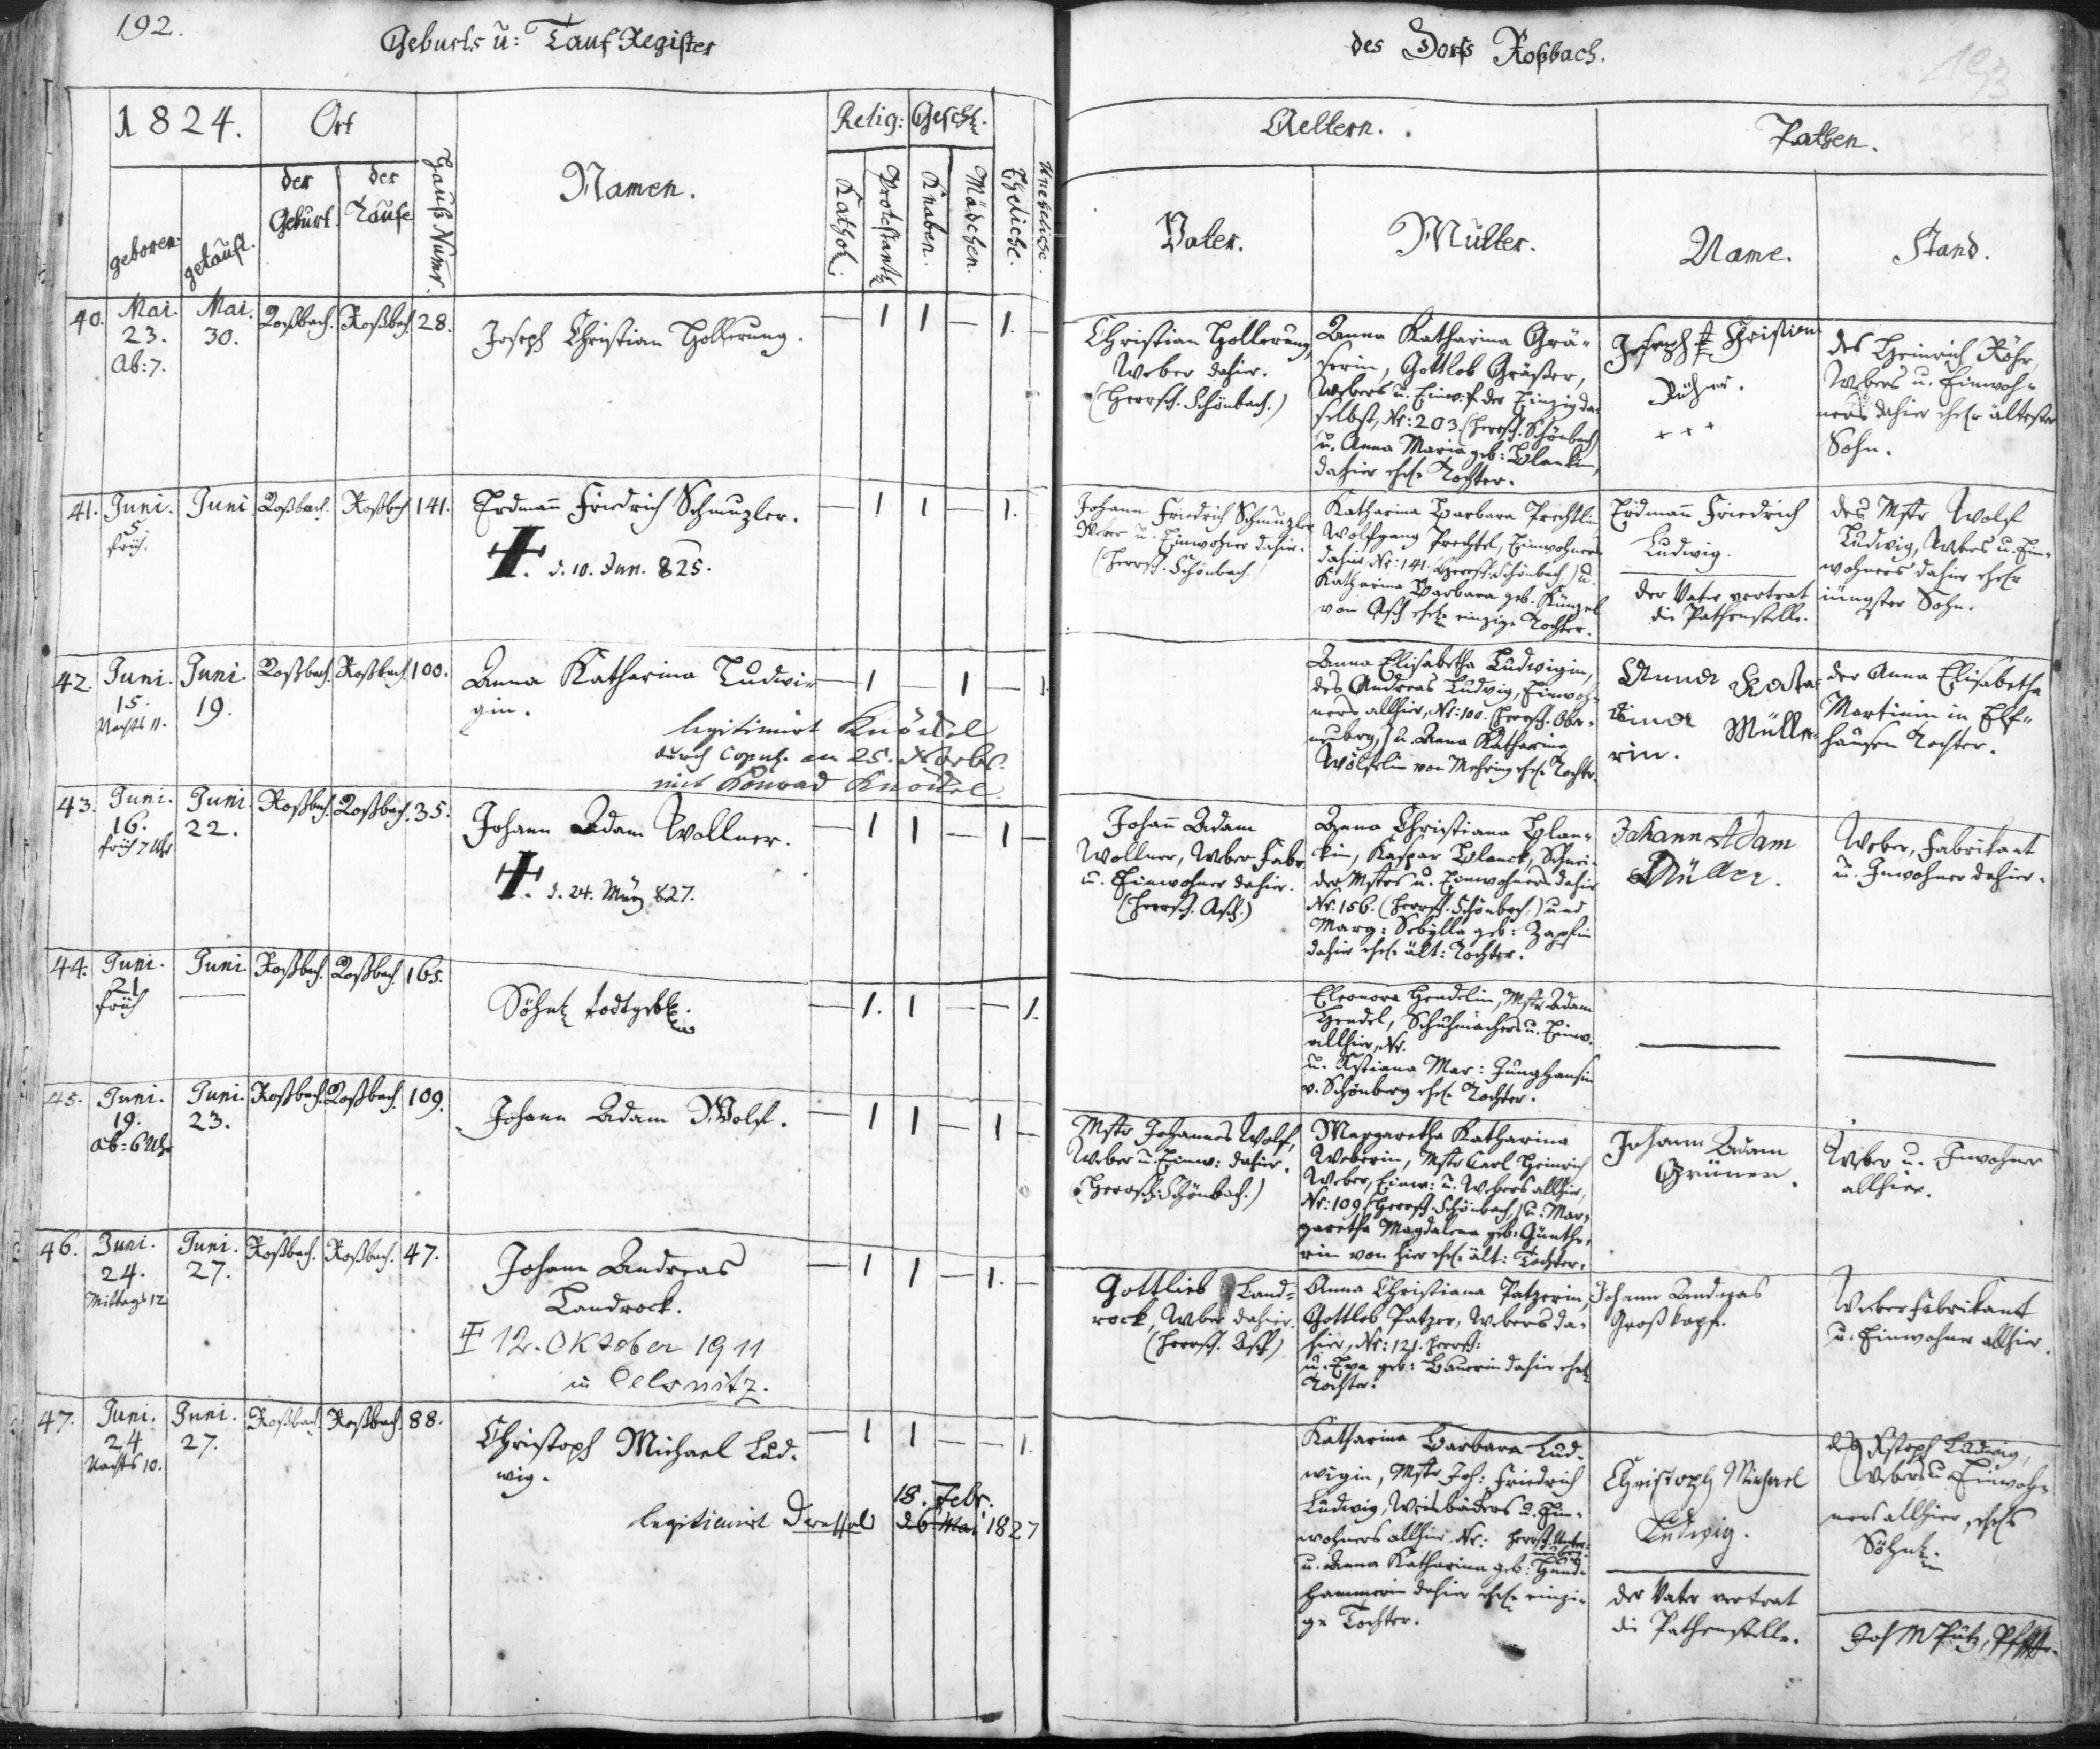 192.
Geburts u: Tauf Register
1824.
Ort
Namen.
Relig:
Geschl.
geboren.
getauft.
der Geburt.
der Taufe
Hauß Numr.
Kathol.
Protestant
Knaben.
Mädchen.
Eheliche.
Uneheliche.
40. Mai. Mai. Roßbach. Roßbach. 28. Joseph Christian Hollerung. — 1 1 — 1. —
23. 30.
Ab: 7.
41. Juni. Juni Roßbach. Roßbach 141. Erdmañ Friedrich Schmuzler. — 1 1 — 1.
5.
früh.
d. 10. Jun. 825.
42. Juni. Juni. Roßbach. Roßbach. 100. Anna Katharina Ludwi= — 1 — 1 — 1
15. 19. gin.
Nachts 11.
legitimirt Knödel
durch Copul. am 25. Novbr.
mit Konrad Knödel.
43. Juni. Juni Roßbach. Roßbach. 35. Johann Adam Wollner. — 1 1 — 1 —
16. 22.
früh 7 Uhr
d. 24. März 827.
44. Juni. Juni. Roßbach. Roßbach. 165.
21 —
früh
Söhnl. todtgeb. — 1. 1 — — 1.
45. Juni. Juni. Roßbach. Roßbach. 109. Johann Adam Wolf. — 1 1 — 1 —
19. 23.
Ab: 6 Uhr
46. Juni. Juni. Roßbach. Roßbach. 47. Johann Andreas — 1 1 — 1. —
24. 27. Landrock.
Mittags 12
12. Oktober 1911
in Oelsnitz.
47. Juni. Juni. Roßbach. Roßbach. 88. Christoph Michael Lud= — 1 1 — — 1.
24 27. wig.
Nachts 10.
18. Febr.
legitimirt 26 Mai 1827
des Dorfs Roßbach.
193
Aeltern.
Pathen.
Vater.
Mutter.
Name.
Stand.
Christian Hollerung,
Weber dahier.
(Herrsch. Schönbach.)
Anna Katharina Grä=
serin, Gottlob Gräßer,
Webers u. Einw. der Einzig da=
selbst, Nr: 203. (Herrsch. Schönbach)
u. Anna Maria geb: Blankin,
dahier ehel. Tochter.
Joseph Christian
+ + +
des Heinrich
Webers u. Einwoh=
ners dahier ehelr ältester
Sohn.
Johann Friedrich Schmuzler
Weber u. Einwohner dahier.
(Herrsch. Schönbach.
Katharina Barbara Prechtlin
Wolfgang Prechtel, Einwohners
dahier, Nr: 141. (Herrsch. Schönbach) u.
Katharina Barbara geb. Künzel
von Asch ehel. einzige Tochter.
Erdmañ Friedrich
Ludwig.
der Vater vertrat
die Pathenstelle.
des Mstr Wolf
Ludwig, Webers u. Ein=
wohners dahier ehelr
jüngster Sohn.
Anna Elisabetha Ludwigin,
des Andreas Ludwig, Einwoh=
ners allhier, Nr: 100. Herrsch.
neuberg, u. Anna Katharina
Wölfelin von Mehring ehel. Tochter.
Anna Katha=
rina Mülle=
rin.
der Anna Elisabetha
Martinin in Elf=
hausen Tochter.
Johañ Adam
Wollner, Weber Fabr.
u. Einwohner dahier.
(Herrsch. Asch.)
Anna Christiana Blan=
kin, Kaspar Blanck, Schnei=
der Mstrs u. Einwohners dahier
Nr: 156. (Herrsch. Schönbach,) und
Marg: Sybilla geb: Zapfin
dahier ehel. ält: Tochter.
Johann Adam
Müller.
Weber, Fabrikant
u. Inwohner dahier.
Eleonora Hendelin, Mstr Adam
Hendel, Schuhmachers u. Einw.
allhier, Nr.
u. Mar: Junghansin
v. Schönberg ehel. Tochter.
Mstr Johannes Wolf,
Weber u. Einw: dahier.
(Herrsch. Schönbach.)
Margaretha Katharina
Weberin, Mstr Carl Heinrich
Weber, Einw: u. Webers allhier,
Nr: 109. (Herrsch. Schönbach,) u. Mar=
garetha Magdalena geb. Günthe=
rin von hier ehel. ält: Tochter.
Johann Adam
Grünen.
Weber u. Inwohner
allhier.
Gottlieb Land=
rock, Weber dahier.
(Herrsch. Asch)
Anna Christiana Patzerin,
Gottlob Patzer, Webers da=
hier, Nr: 121. Herrsch:
u. Eva geb: Bauerin dahier ehel.
Tochter.
Johann Andreas
Großkopf.
Weber Fabrikant
u. Einwohner allhier.
Katharina Barbara Lud=
wigin, Mstr Joh: Friedrich
Ludwig, Weisbäckers u. Ein=
wohners allhier. Nr: Herrsch. Unter=
neuberg.
u. Anna Katharina geb:
dahier ehel. einzi=
ge Tochter.
Christoph Michael
Ludwig.
der Vater vertrat
die Pathenstelle.
des Xstoph Ludwig,
Webers u. Einwoh=
ners allhier, ehels
Söhnl.